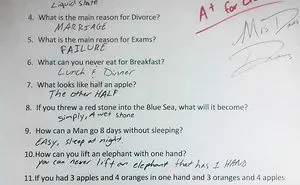 Liquid state
A+ for
4. What is the main reason for Divorce?
MARRIAGE
Mrs
5. What is the main reason for Exams?
FAILURE
6. What can you never eat for Breakfast?
Lunch & Dinner
7. What looks like half an apple?
The other HALF
8. If you threw a red stone into the Blue Sea, what will it become?
Simply, A wet stone
9. How can a Man go 8 days without sleeping?
EASY, sleep at night
10. How can you lift an elephant with one hand?
you can never lift an elephant that has 1 HAND
11. If you had 3 apples and 4 oranges in one hand and 3 oranges and 4 apples